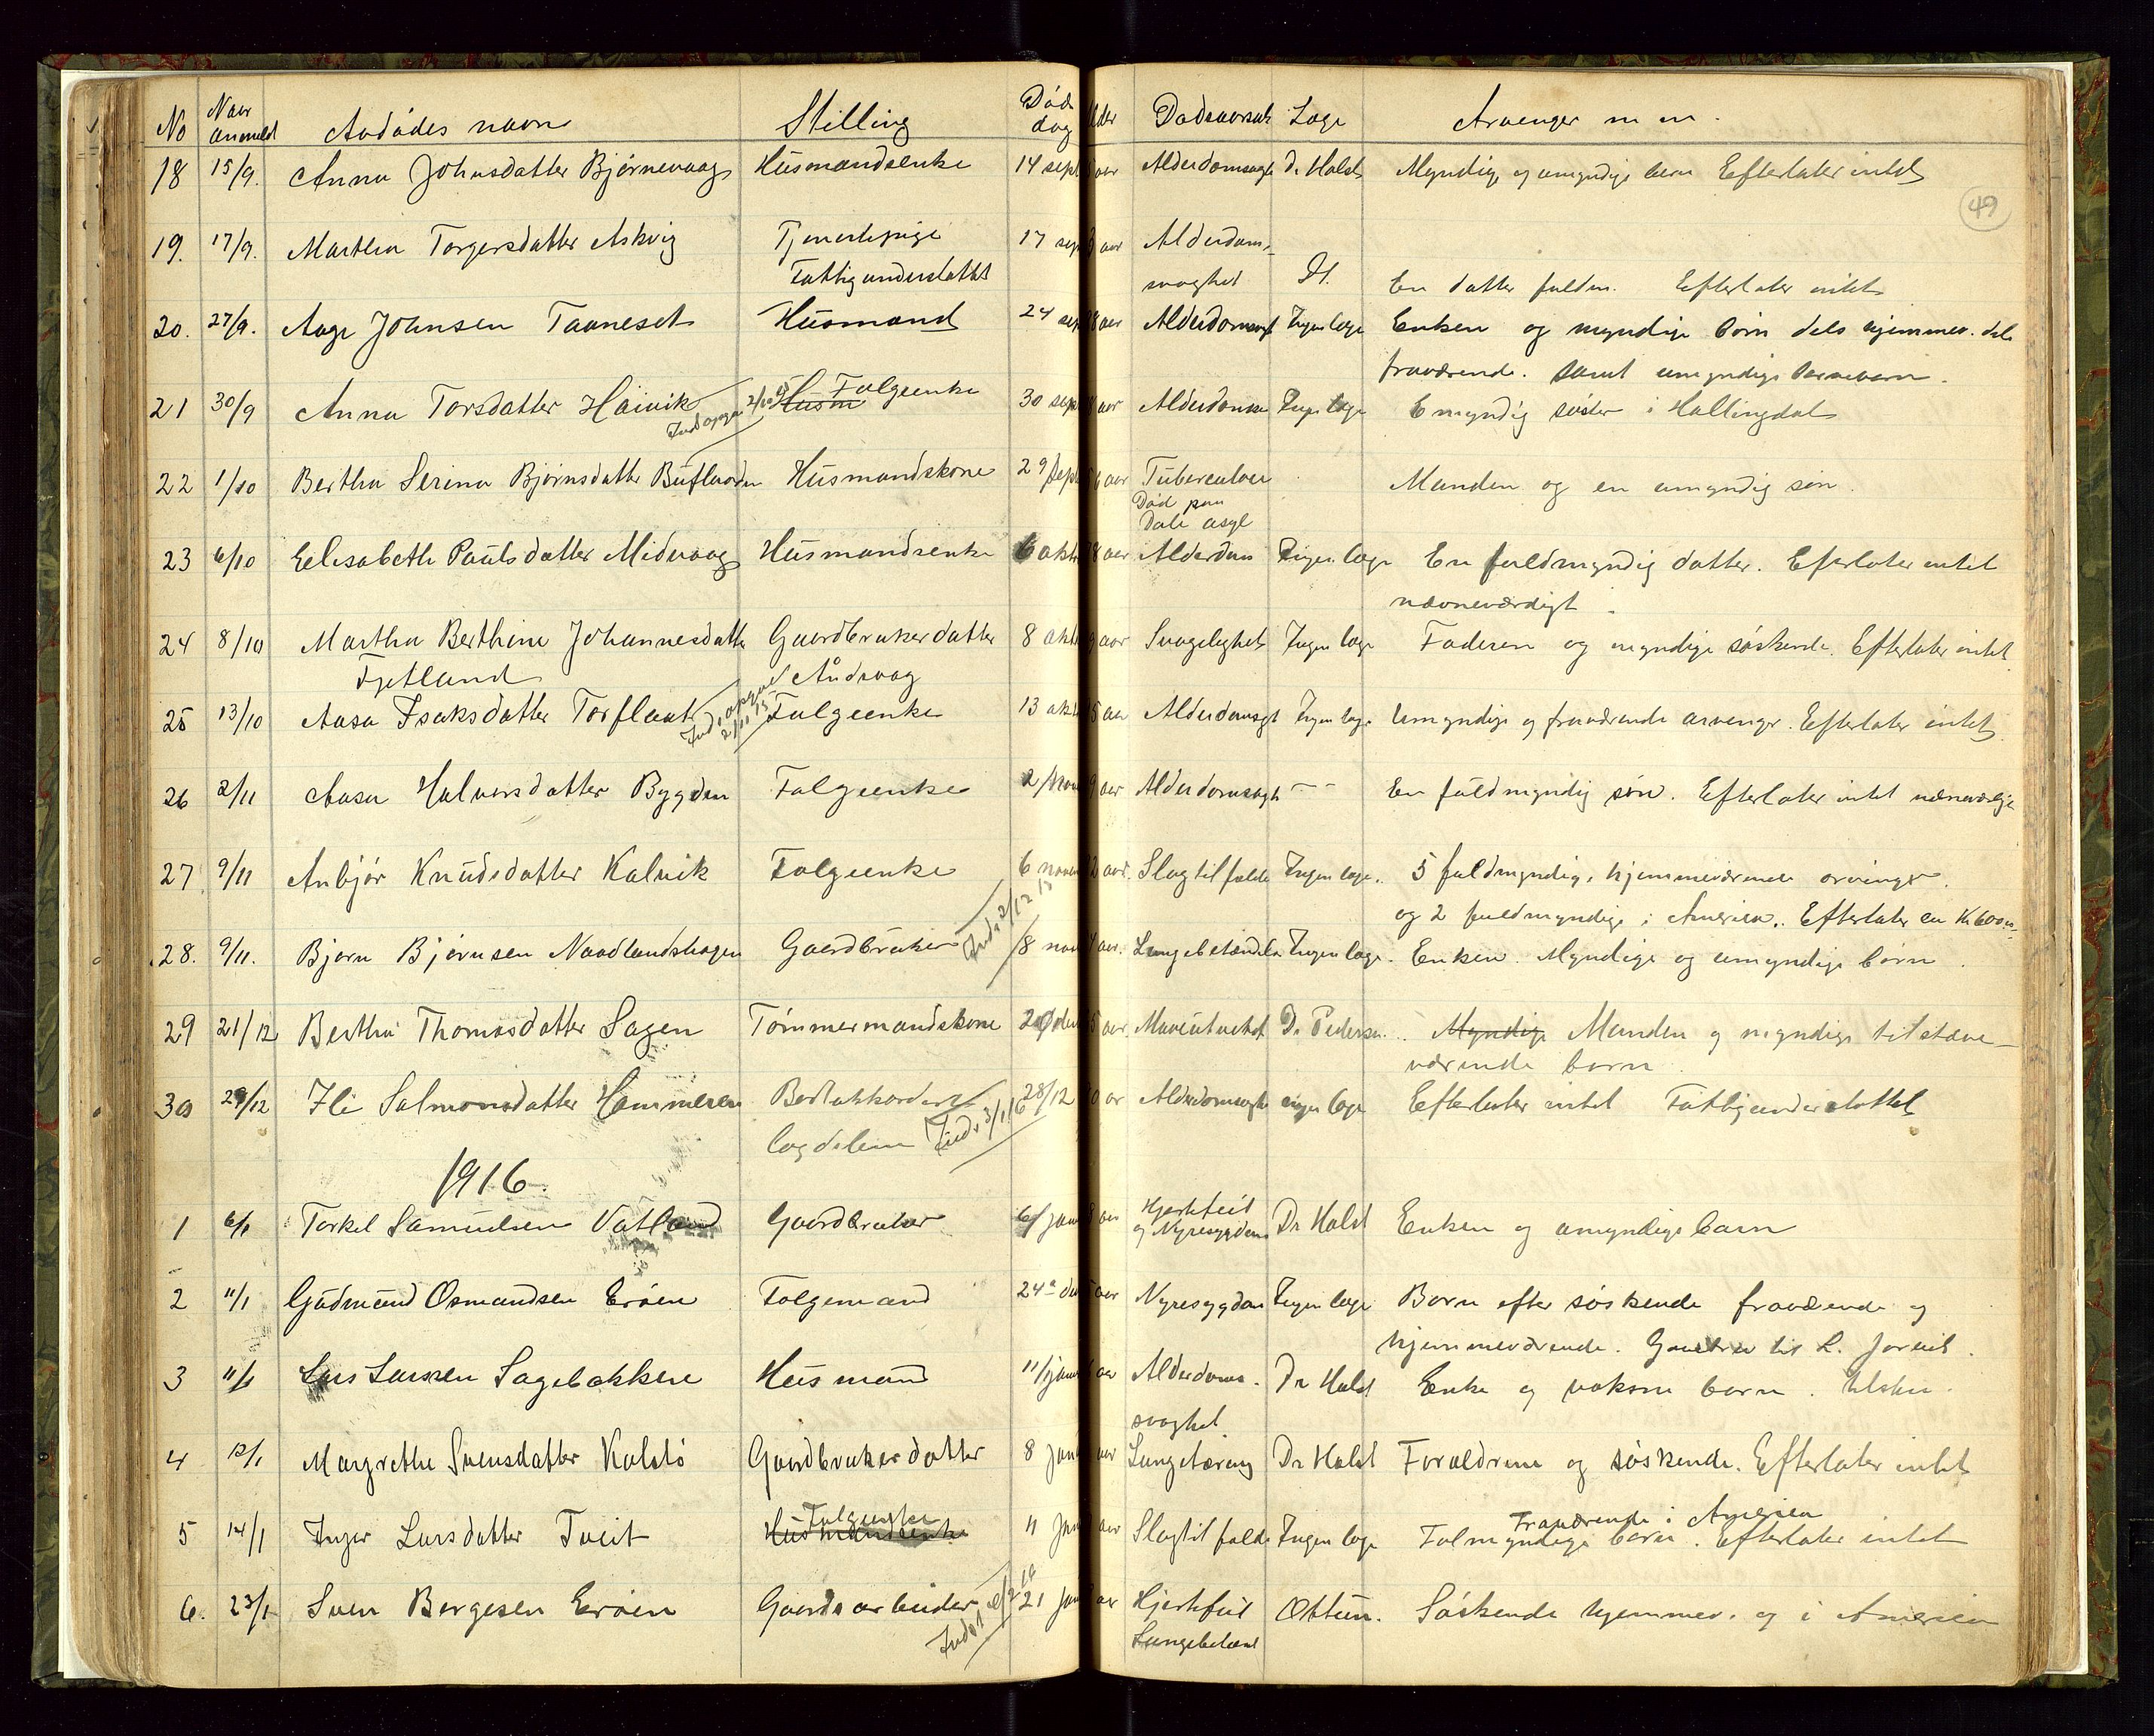 No Naar anmeldt Avdødes navn Stilling Død dag Alder Dødsaarsak Læge Arvenger m m.
49
18 15/9. Anna Johnsdatter Bjørnevaag Husmandsenke 14 sept aar Alderdomsvagh Dr Halst Myndige og umyndige børn Efterlater intet
19. 17/9. Martha Torgersdatter Askvig Tjenestepige 17 sep aar Alderdom-
Fattigunderstøttet svaghet H. En datter fuldm. Efterlater intet
20. 27/9. Aage Johnsen Taaneset Husmand 24 sep aar Alderdomsvagh Ingen læge Enken og myndige børn dels hjemmev. dels
fraværende. samt umyndige barnebarn.
21 30/9 Anna Torsdatter Høivik Indopgav 2/10 15 Husm Folgeenke 30 sept aar Alderdomsv Ingen læge En myndig søster i Hallingdal
22 1/10 Bertha Serina Bjørnsdatter Buflaaden Husmandskone 29 sept aar Tuberculose Manden og en umyndig søn.
Død paa
Dale asyl
23 6/10 Eelisabeth Paulsdatter Midvaag Husmandsenke 6 okt 8 aar Alderdom Ingen læge En fuldmyndig datter. Efterlater intet
nævneværdigt.
24 8/10 Martha Berthine Johannesdatter Gaardbrukerdatter 8 okt 9 aar Svagelighet Ingen læge Faderen og myndige søskende. Efterlater intet
Fjetland Andvaag
25 13/10 Aasa Isaksdatter Torflaat Indopgav 2/11 15 Folgeenke 13 okt 5 aar Alderdomsvgt Ingen læge Umyndige og fraværende arvenger. Efterlater intet
26 2/11 Aasa Halvorsdatter Bygden Folgeenke 2/nov 9 aar Alderdomsvagh - - En fuldmyndig søn. Efterlater intet nævneværdige
27 9/11 Anbjør Knudsdatter Kalvik Folgeenke 6 novem 2 aar. Slagtilfælde Ingen læge. 5 fuldmyndige, hjemmeværende arvinger.
og 2 fuldmyndige i America. Efterlater ca Kr 600
28. 9/11. Bjørn Bjørnsen Naadlandshagen Gaardbruker Inds 2/12 15 8 nov 4 aar. Lungebetændelse Ingen læge. Enken. Myndige og umyndige børn.
29 21/12 Bertha Thomasdatter Sagen Tømmermandskone 20 des 5 aar. Dr Pedersen Myndige Manden og myndige tilstæde-
værende børn
30 29/12 Ili Salmonsdatter Hammeren Inds 3/1 16 28/12 0 ar Alderdomsvaghet ingen læge Efterlater intet Fattigunderstøttet
1916.
1 6/1 Torkel Samuelsen Vatland Gaardbruker 6/janu aar Hjertefeil og Nyresygdom Dr Halst Enken og umyndige børn
2 11/1 Gudmund Osmundsen Erøen Folgemand 24 des aar Nyresygdom Ingen læge Børn efter søskende fraværende og
hjemmeværende. til L.
3 11/1 Lars Larssen Sagebakken Husmand 11/janu aar Alderdoms- Dr Halst Enke og voksne børn.
svaghet
4 12/1 Margrethe Svensdatter Kalstø Gaardbrukerdatter 8 janu aar Lungetæring Dr Halst Forældrene og søskende. Efterlater intet
5 14/1 Inger Larsdatter Tveit Husmandsenke Folgeenke 11 janu aar Slagtilfælde Ingen læge Fraværende i America
Fulmyndige børn. Efterlater intet
6. 23/1 Sven Børgesen Erøen Gaardsarbeider 21 janu aar Hjertefeil Ottun. Søskende hjemmev. og i America
Lungebetænd